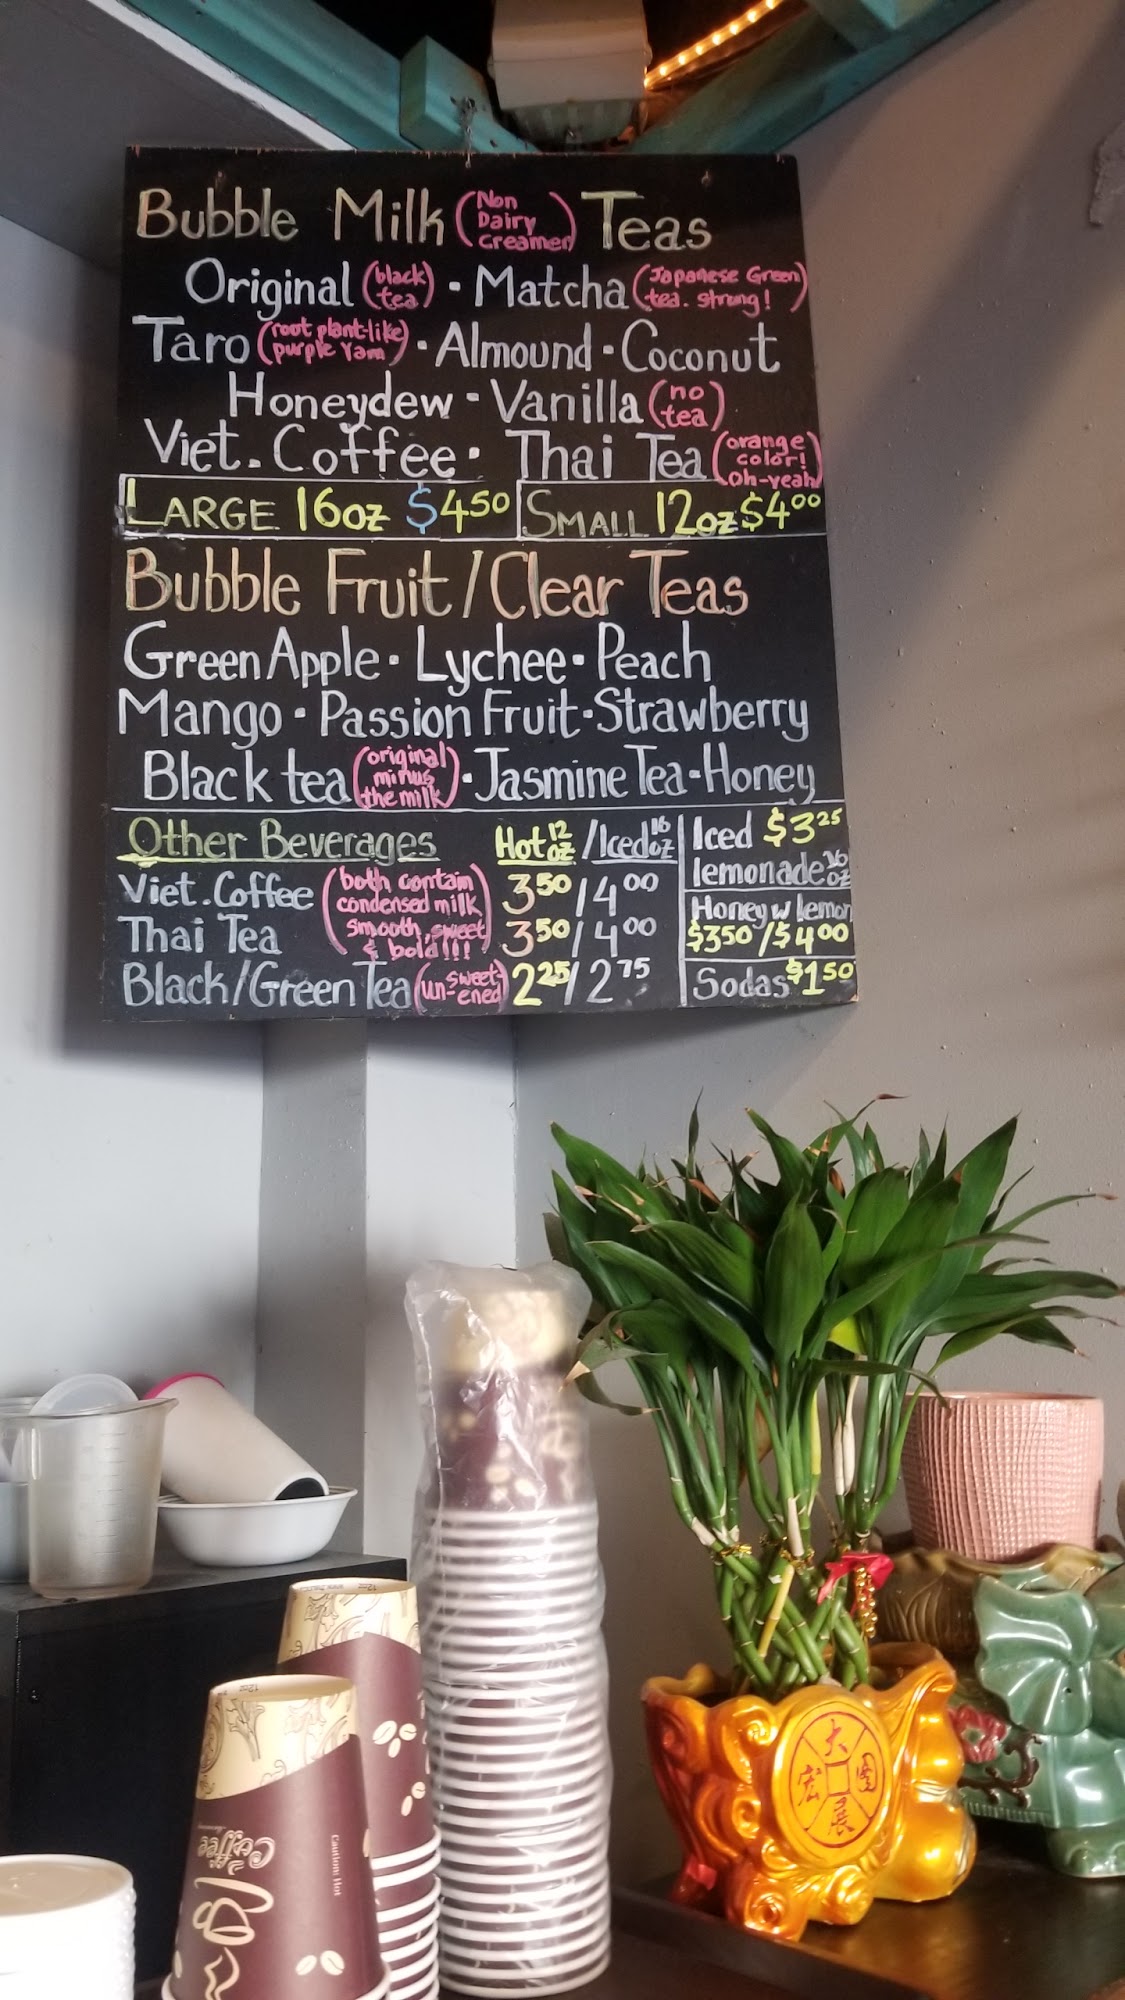 Bubble Milk (Non Dairy Creamer) Teas
Original (black tea) · Matcha (Japanese Green tea. strong!)
Taro (root plant-like purple yam) · Almound · Coconut
Honeydew - Vanilla (no tea)
Viet. Coffee · Thai Tea (orange color! Oh-yeah)
LARGE 16oz $4.50
SMALL 12oz $4.00
Bubble Fruit/Clear Teas
Green Apple · Lychee · Peach
Mango · Passion Fruit · Strawberry
Black tea (original minus the milk) · Jasmine Tea - Honey
Other Beverages Hot 12 oz / Iced 16 oz
Viet. Coffee (both contain condensed milk smooth sweet & bold!!!) 3.50 / 4.00
Thai Tea 3.50 / 4.00
Black/Green Tea (un-sweet-ened) 2.25 / 2.75
Iced $3.25
lemonade 16 oz
Honey w lemon
$3.50 / $4.00
Sodas $1.50
12oz
12oz
Coffee
Caution: Hot
大
宏 圖
展